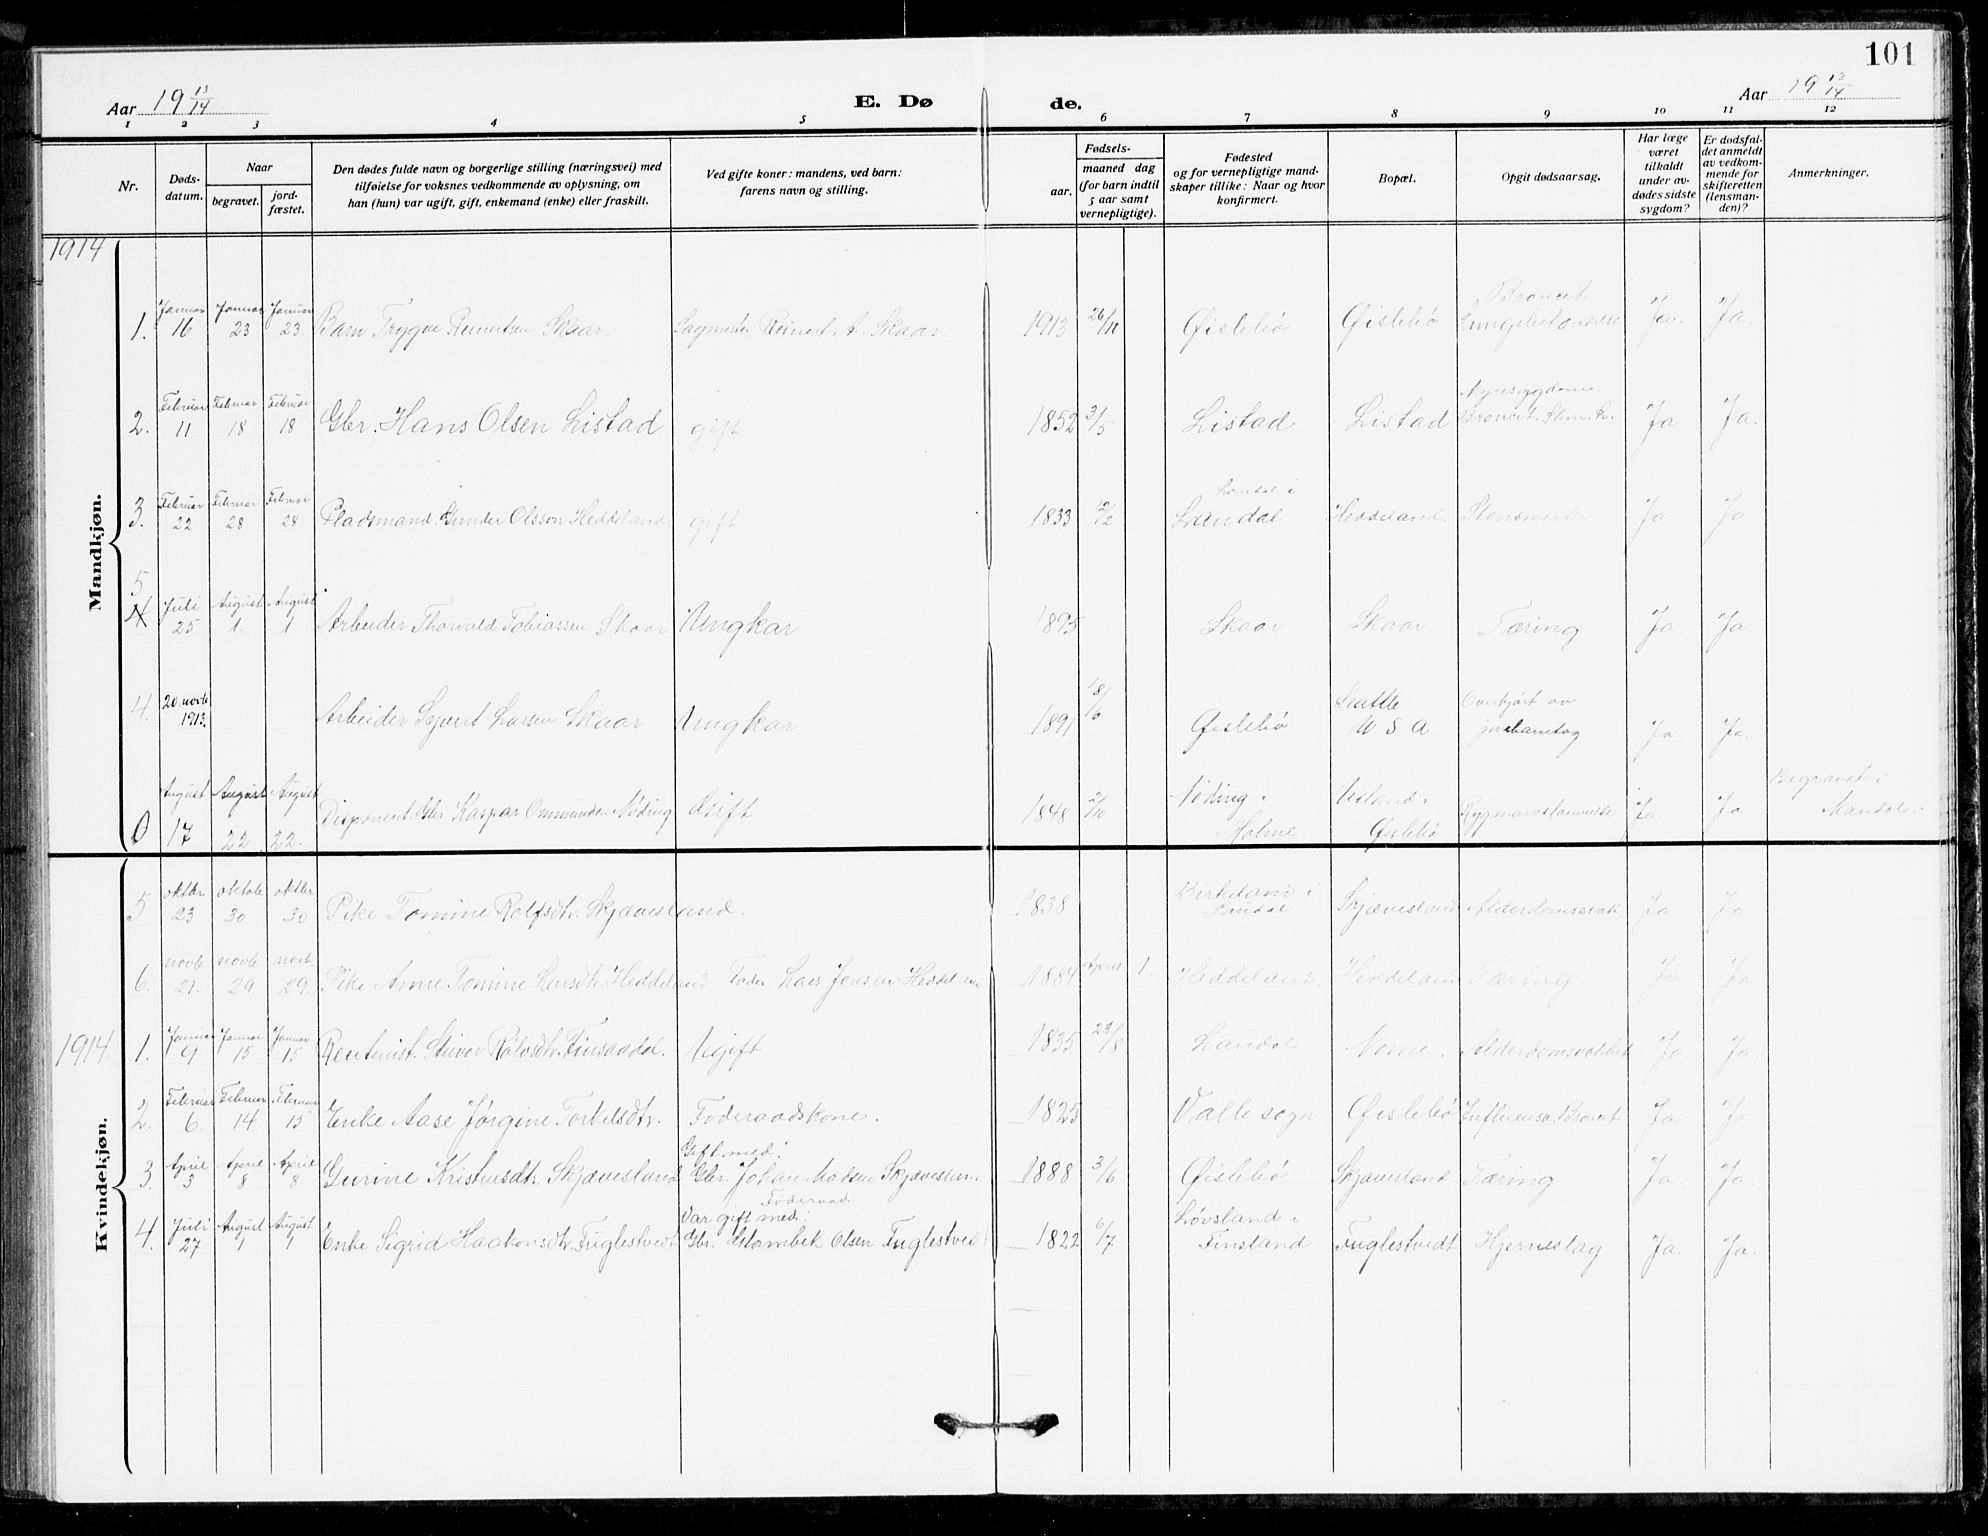 101
Aar 19 13/14
E. Dø
de.
Aar 19 13/14
1 2 3 4 5 6 7 8 9 10 11 12
Nr.
Døds-
datum.
Naar
begravet.
jord-
fæstet.
Den dødes fulde navn og borgerlige stilling (næringsvei) med
tilføielse for voksnes vedkommende av oplysning, om
han (hun) var ugift, gift, enkemand (enke) eller fraskilt.
Ved gifte koner: mandens, ved barn:
farens navn og stilling.
Fødsels-
aar.
maaned dag
(for barn indtil
5 aar samt
vernepligtige).
Fødested
og for vernepligtige mand-
skaper tillike: Naar og hvor
konfirmert.
Bopæl.
Opgit dødsaarsag.
Har læge
været
tilkaldt
under av-
dødes sidste
sygdom?
Er dødsfal-
det anmeldt
av vedkom-
mende for
skifteretten
(lensman-
den)?
Anmerkninger.
1914
Mandkjøn.
1. Januar 16 Januar 23 Januar 23. Barn Trygve Reinertsen Skaar. Sagmester Reinert A. Skaar. 1913 26/11 Øislebø Øislebø Broncit Lungebetændelse Ja. Ja.
2. Februar 11 Februar 18 Februar 18 Gbr. Hans Olsen Listad gift 1852 3/5 Listad Listad Nyresygdom Broncit Ja Ja.
3. Februar 22 Februar 28 Februar 28 Pladsmand Gunder Olsson Heddeland. gift 1833 12/2 Laudal Heddeland. Ja Ja
5
4 Juli 25 August 1. August 1. Arbeider Thorvald Tobiassen Skaar Ungkar 1895 Skaar Skaar Tæring Ja. Ja.
4. 20 novbr 1913. Arbeider Syvert Larsen Skaar Ungkar 1891 18/6 Øislebø Seattle U. S. A Overkjørt av Ja. Ja.
August 17 August 22 August 22. Disponent. Gbr Kaspar Ommundsen Nøding Gift 1848 2/10 Nøding i Holme. Usland i Øislebø Rygmarvslammelse Ja Ja Begravet i Mandal.
Kvindekjøn.
5 oktbr 23 oktobr 30 oktbr 30 Pike Tomine Rolfsdtr. Skjævesland. 1838 Birkeland i Laudal Skjævesland Alderdomssvak Ja Ja
6. novbr 21. novbr 29 novbr 29. Pike Anne Tomine Larsdtr. Heddeland Fader. Lars Jensen Heddeland 1884 April 1. Heddeland. Heddeland Tæring. Ja. Ja
1914.
1. Januar 9 Januar 15 Januar 15 Rentenist. Rolvsdtr. Finsaadal. Ugift 1835 23/8 Laudal Nome. Ja Ja.
2. Februar 6. Februar 14 Februar 15 Enke Aase Jørgine Torkelsdtr. Føderaadskone. 1825 Valle sogn Øislebø Influensa. Broncit Ja Ja
3. April 3 April 8 April 8 Gurine Kristensdtr. Skjævesland Gift med: Gbr. Johan Madsen Skjævesland 1888 3/6 Øislebø Skjævesland Tæring Ja. Ja.
4. Juli 27 August 1 August 1 Enke Sigrid Haakonsdtr. Fuglestvedt Var gift med: Føderaad Gbr. Olsen Fuglestvedt 1822 6/7 Løvsland i Finsland Fuglestvedt Hjerneslag Ja. Ja.